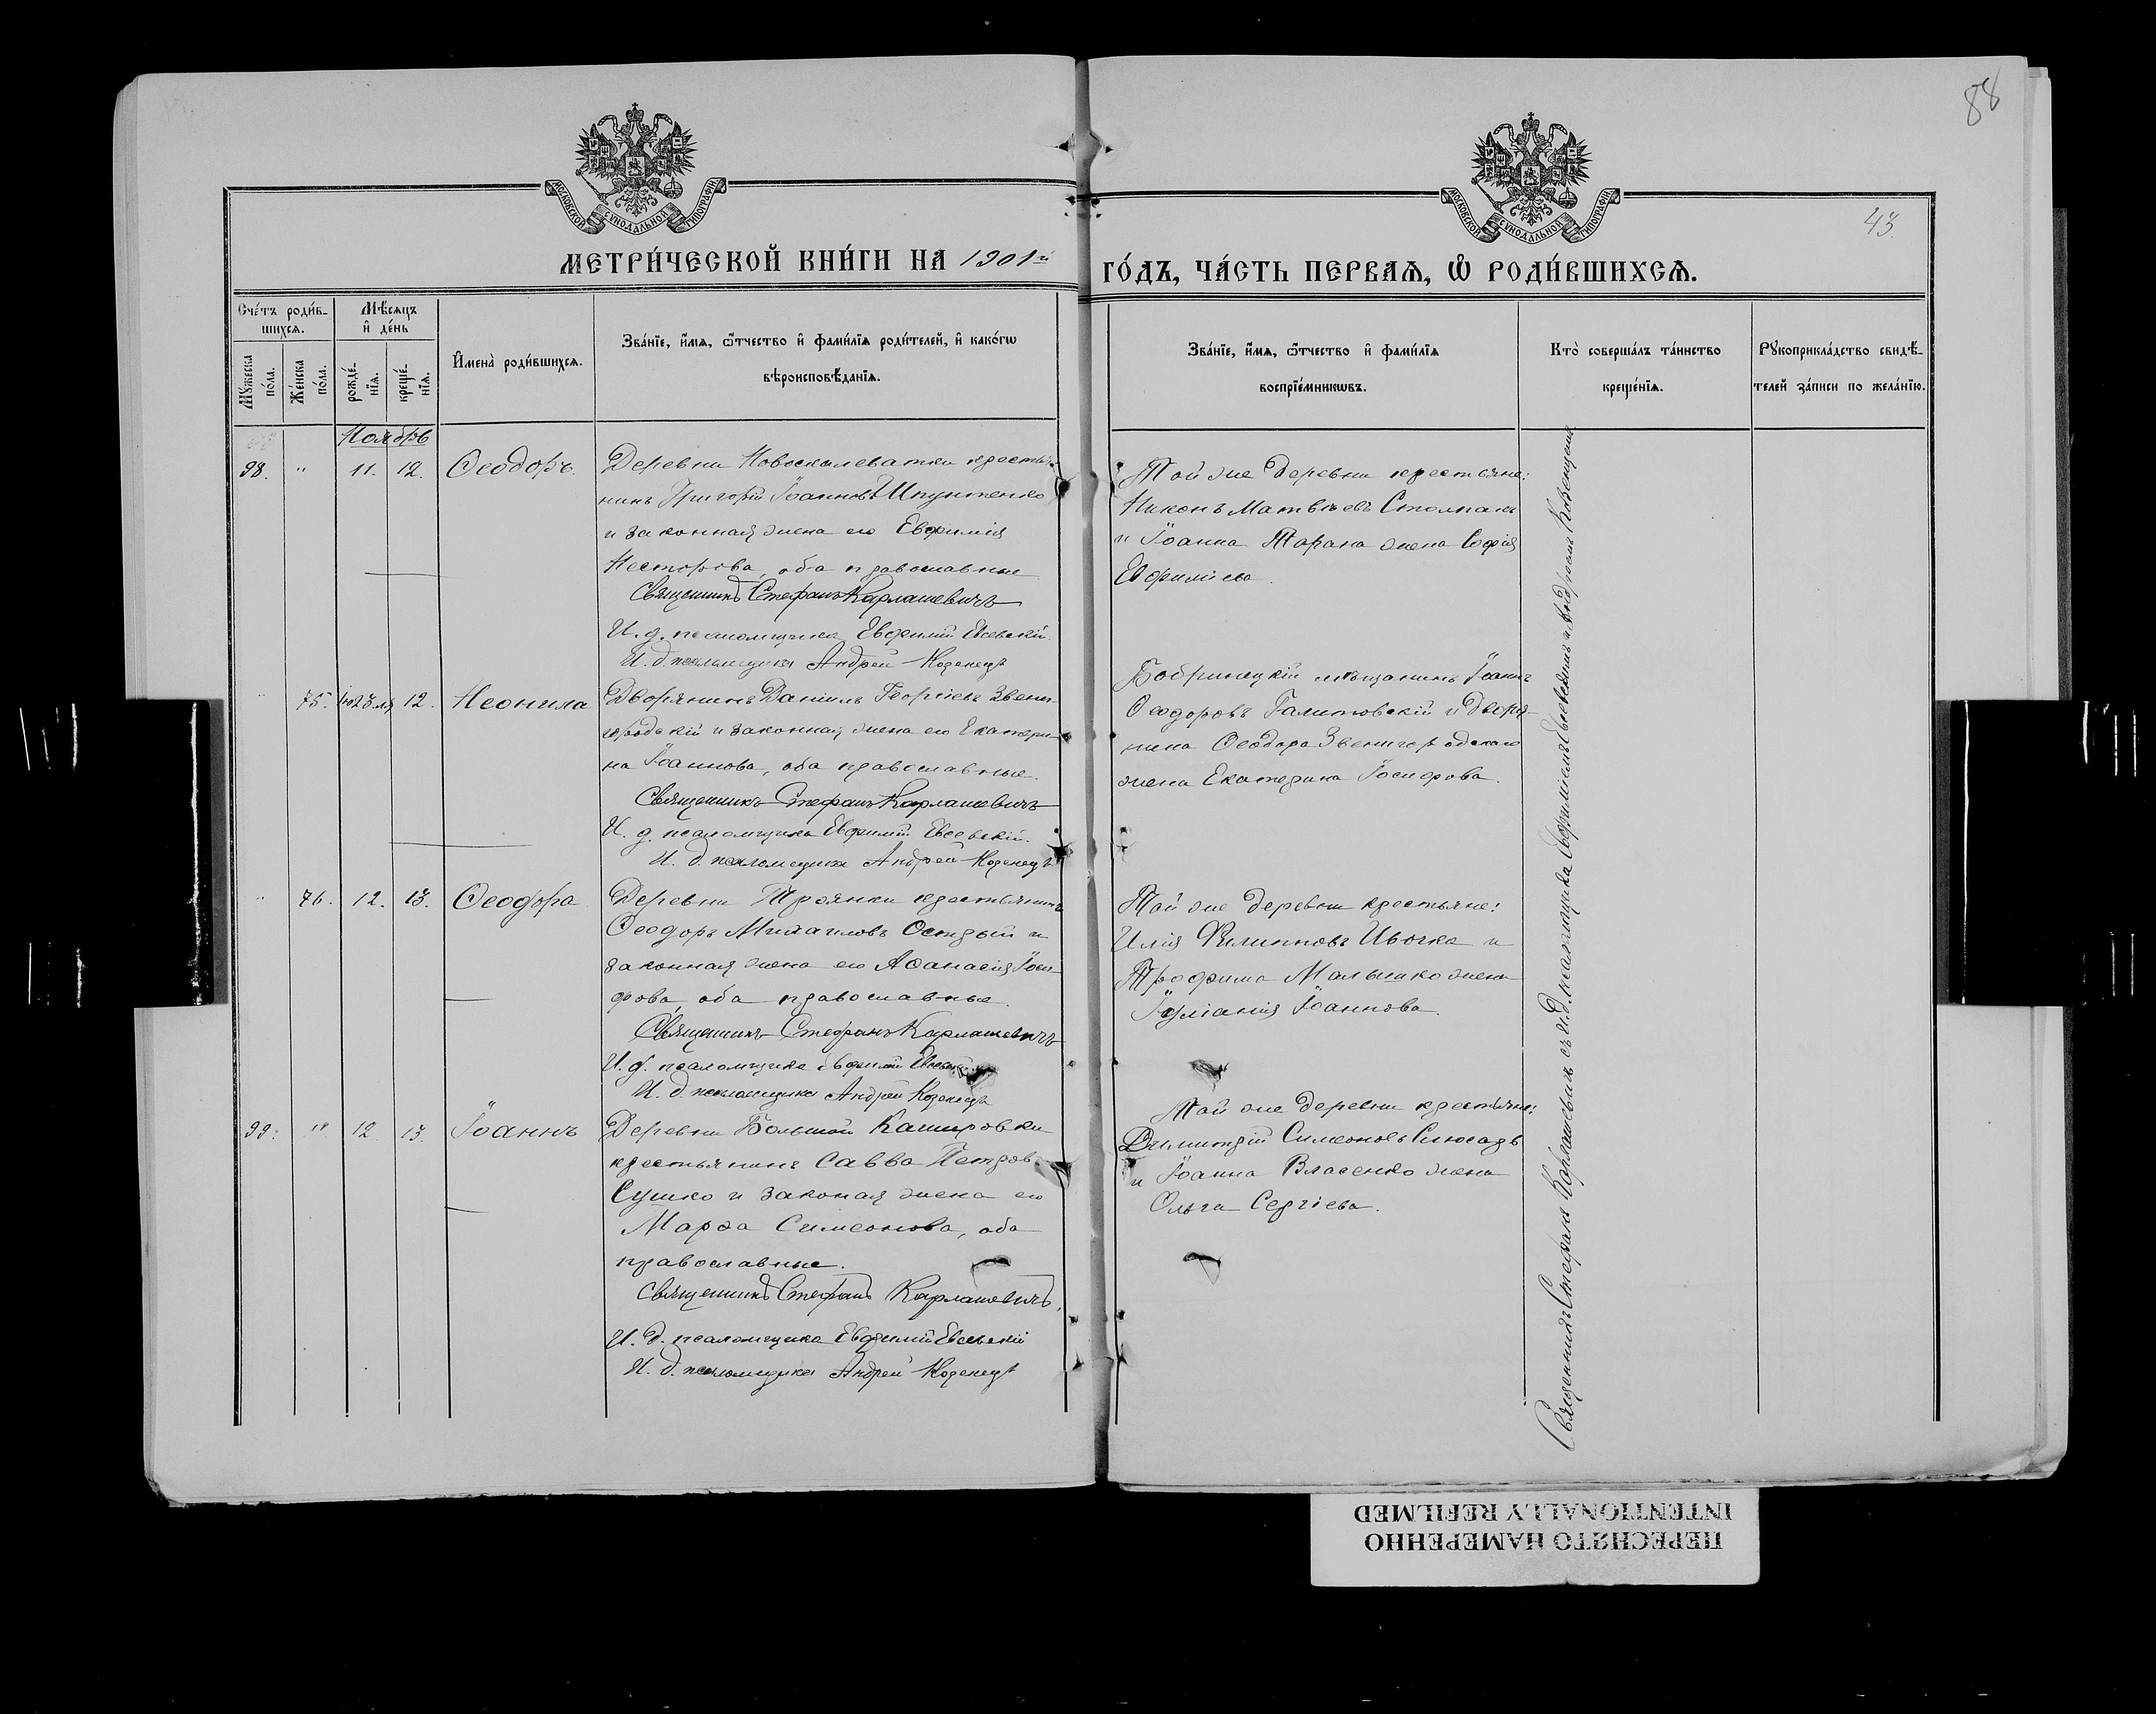 88
43.
МОСКОВСКОЙ СѴНОДАЛЬНОЙ ТИПОГРАФІИ.
МОСКОВСКОЙ СѴНОДАЛЬНОЙ ТИПОГРАФІИ.
МЕТРИ́ЧЕСКОЙ КНИ́ГИ НА 1901й
ГО́ДЪ, ЧА́СТЬ ПЕРВАѦ, Ѽ РОДИ́ВШИХСѦ.
Сче́тъ роди́в-
шихсѧ.
Мѣ́сѧцъ
и҆ де́нь
Мꙋ́жеска
по́ла.
Же́нска
по́ла.
рожде́-
нїѧ.
креще́-
нїѧ.
И҆мена̀ роди́вшихсѧ.
Зва́нїе, и҆́мѧ, ѻ҆́тчество и҆ фами́лїѧ роди́телей, и҆ како́гѡ
вѣроисповѣ́данїѧ.
Зва́нїе, и҆́мѧ, ѻ҆́тчество и҆ фами́лїѧ
воспрїе́мникѡвъ.
Кто̀ соверша́лъ та́инство
креще́нїѧ.
Рꙋкоприкла́дство свидѣ́-
телей за́писи по жела́нїю.
Ноябрь
98. " 11. 12. Ѳеодоръ.
Деревни Новоскалеватки крестья-
нинъ Григорій Іоанновъ Шпунтенко
и законная жена его Евфимія
Несторова, оба православные
Священникъ Стефанъ Карлашевичъ
И. д. псаломщика Евфимій Евсевскій.
И. д. псаломщика Андрей Козенецъ
Той же деревни крестьяне:
Никонъ Матвѣевъ Столпакъ
и Іоанна Тарана жена Софія
Евфиміева.
" 75. 12. Неонила
Дворянинъ Даніилъ Георгіевъ Звени-
городскій и законная жена его Екатери-
на Іоаннова, оба православные.
Священникъ Стефанъ Карлашевичъ
И. д. псаломщика Евфимій Евсевскій.
И. д. псаломщика Андрей Козенецъ
Бобринецкій мѣщанинъ Іоаннъ
Ѳеодоровъ Галитовскій и Дворя-
нина Ѳеодора Звенигородскаго
жена Екатерина Іосифова.
" 76. 12. 13. Ѳеодора
Деревни Троянки крестьянинъ
Ѳеодоръ Михаиловъ Острый и
законная жена его Аѳанасія Іоси-
фова, оба православные.
Священникъ Стефанъ Карлашевичъ
И. д. псаломщика Евфимій
И. д. псаломщика Андрей Козенецъ
Той же деревни крестьяне:
Илія Филипповъ Ивочка и
Трофима Малышко жена
Іуліанія Іоаннова.
99. " 12 13. Іоаннъ
Деревни Большой Кашировки
крестьянинъ Савва Петровъ
Сушко и законая жена его
Марѳа Симеонова, оба
православные.
Священникъ Стефанъ Карлашевичъ.
И. д. псаломщика Евфимій Евсевскій
И. д. псаломщика Андрей Козенецъ
Той же деревни крестьяне:
Димитрій Симеоновъ Слюсарь
и Іоанна Власенко жена
Ольга Сергіева.
Священникъ Стефанъ Карлашевичъ съ и. д. псаломщика Евфиміемъ Евсевскимъ и Андреемъ
ПЕРЕСНЯТО НАМЕРЕННО
INTENTIONALLY REFILMED